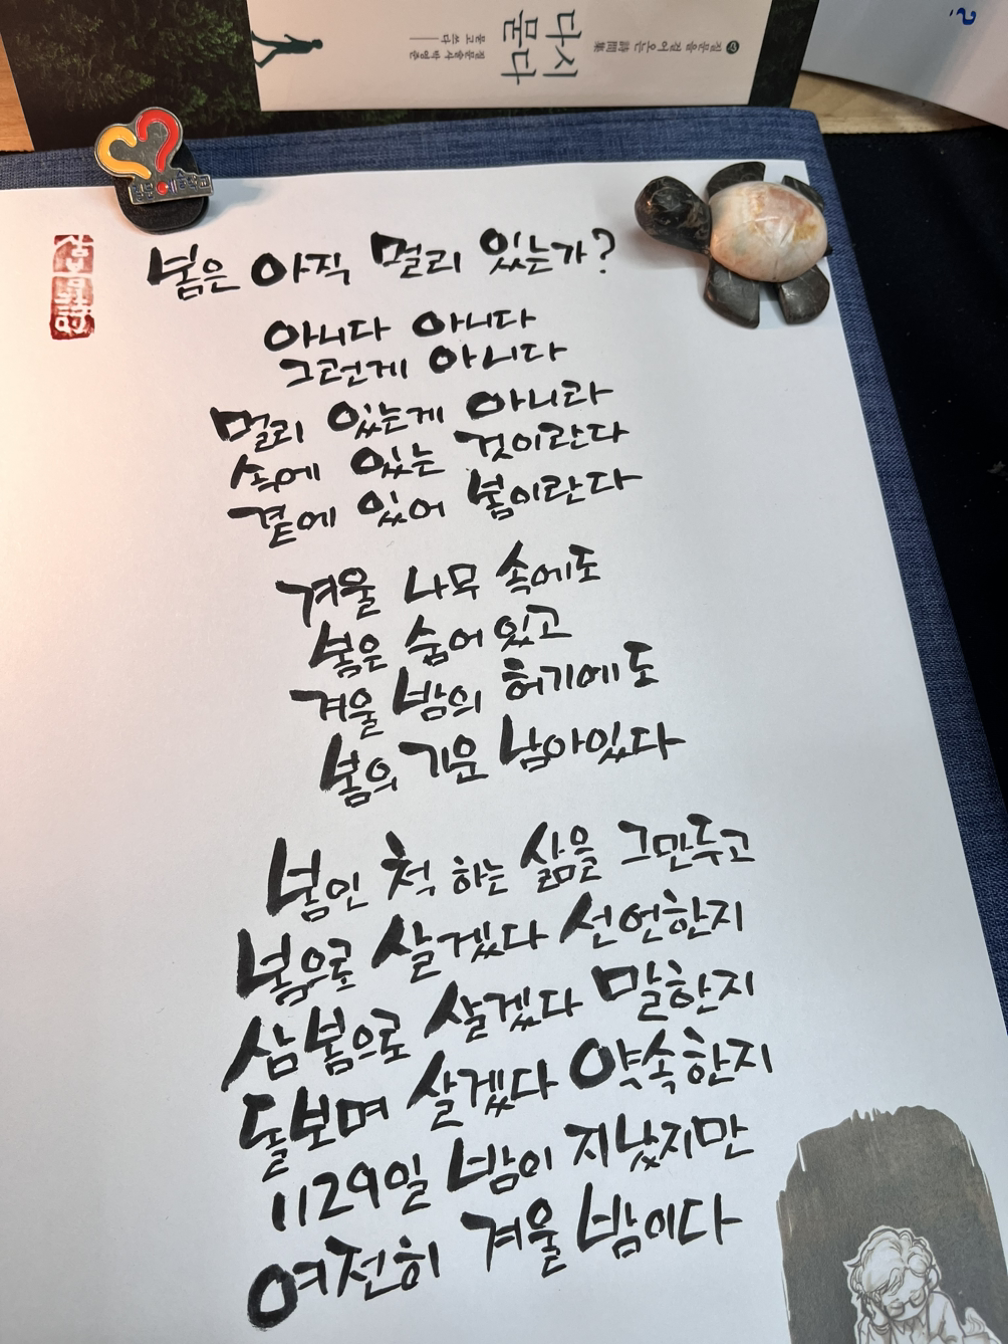 다시
묻다
질문을 걸어오는 詩問集
묻고 쓰다
봄은 아직 멀리 있는가?
아니다 아니다
그런게 아니다
멀리 있는게 아니라
속에 있는 것이란다
곁에 있어 봄이란다
겨울 나무 속에도
봄은 숨어 있고
겨울 밤의 허기에도
봄의 기운 남아있다
봄인 척 하는 삶을 그만두고
봄으로 살겠다 선언한지
삼봄으로 살겠다 말한지
돌보며 살겠다 약속한지
1129일 밤이 지났지만
여전히 겨울 밤이다